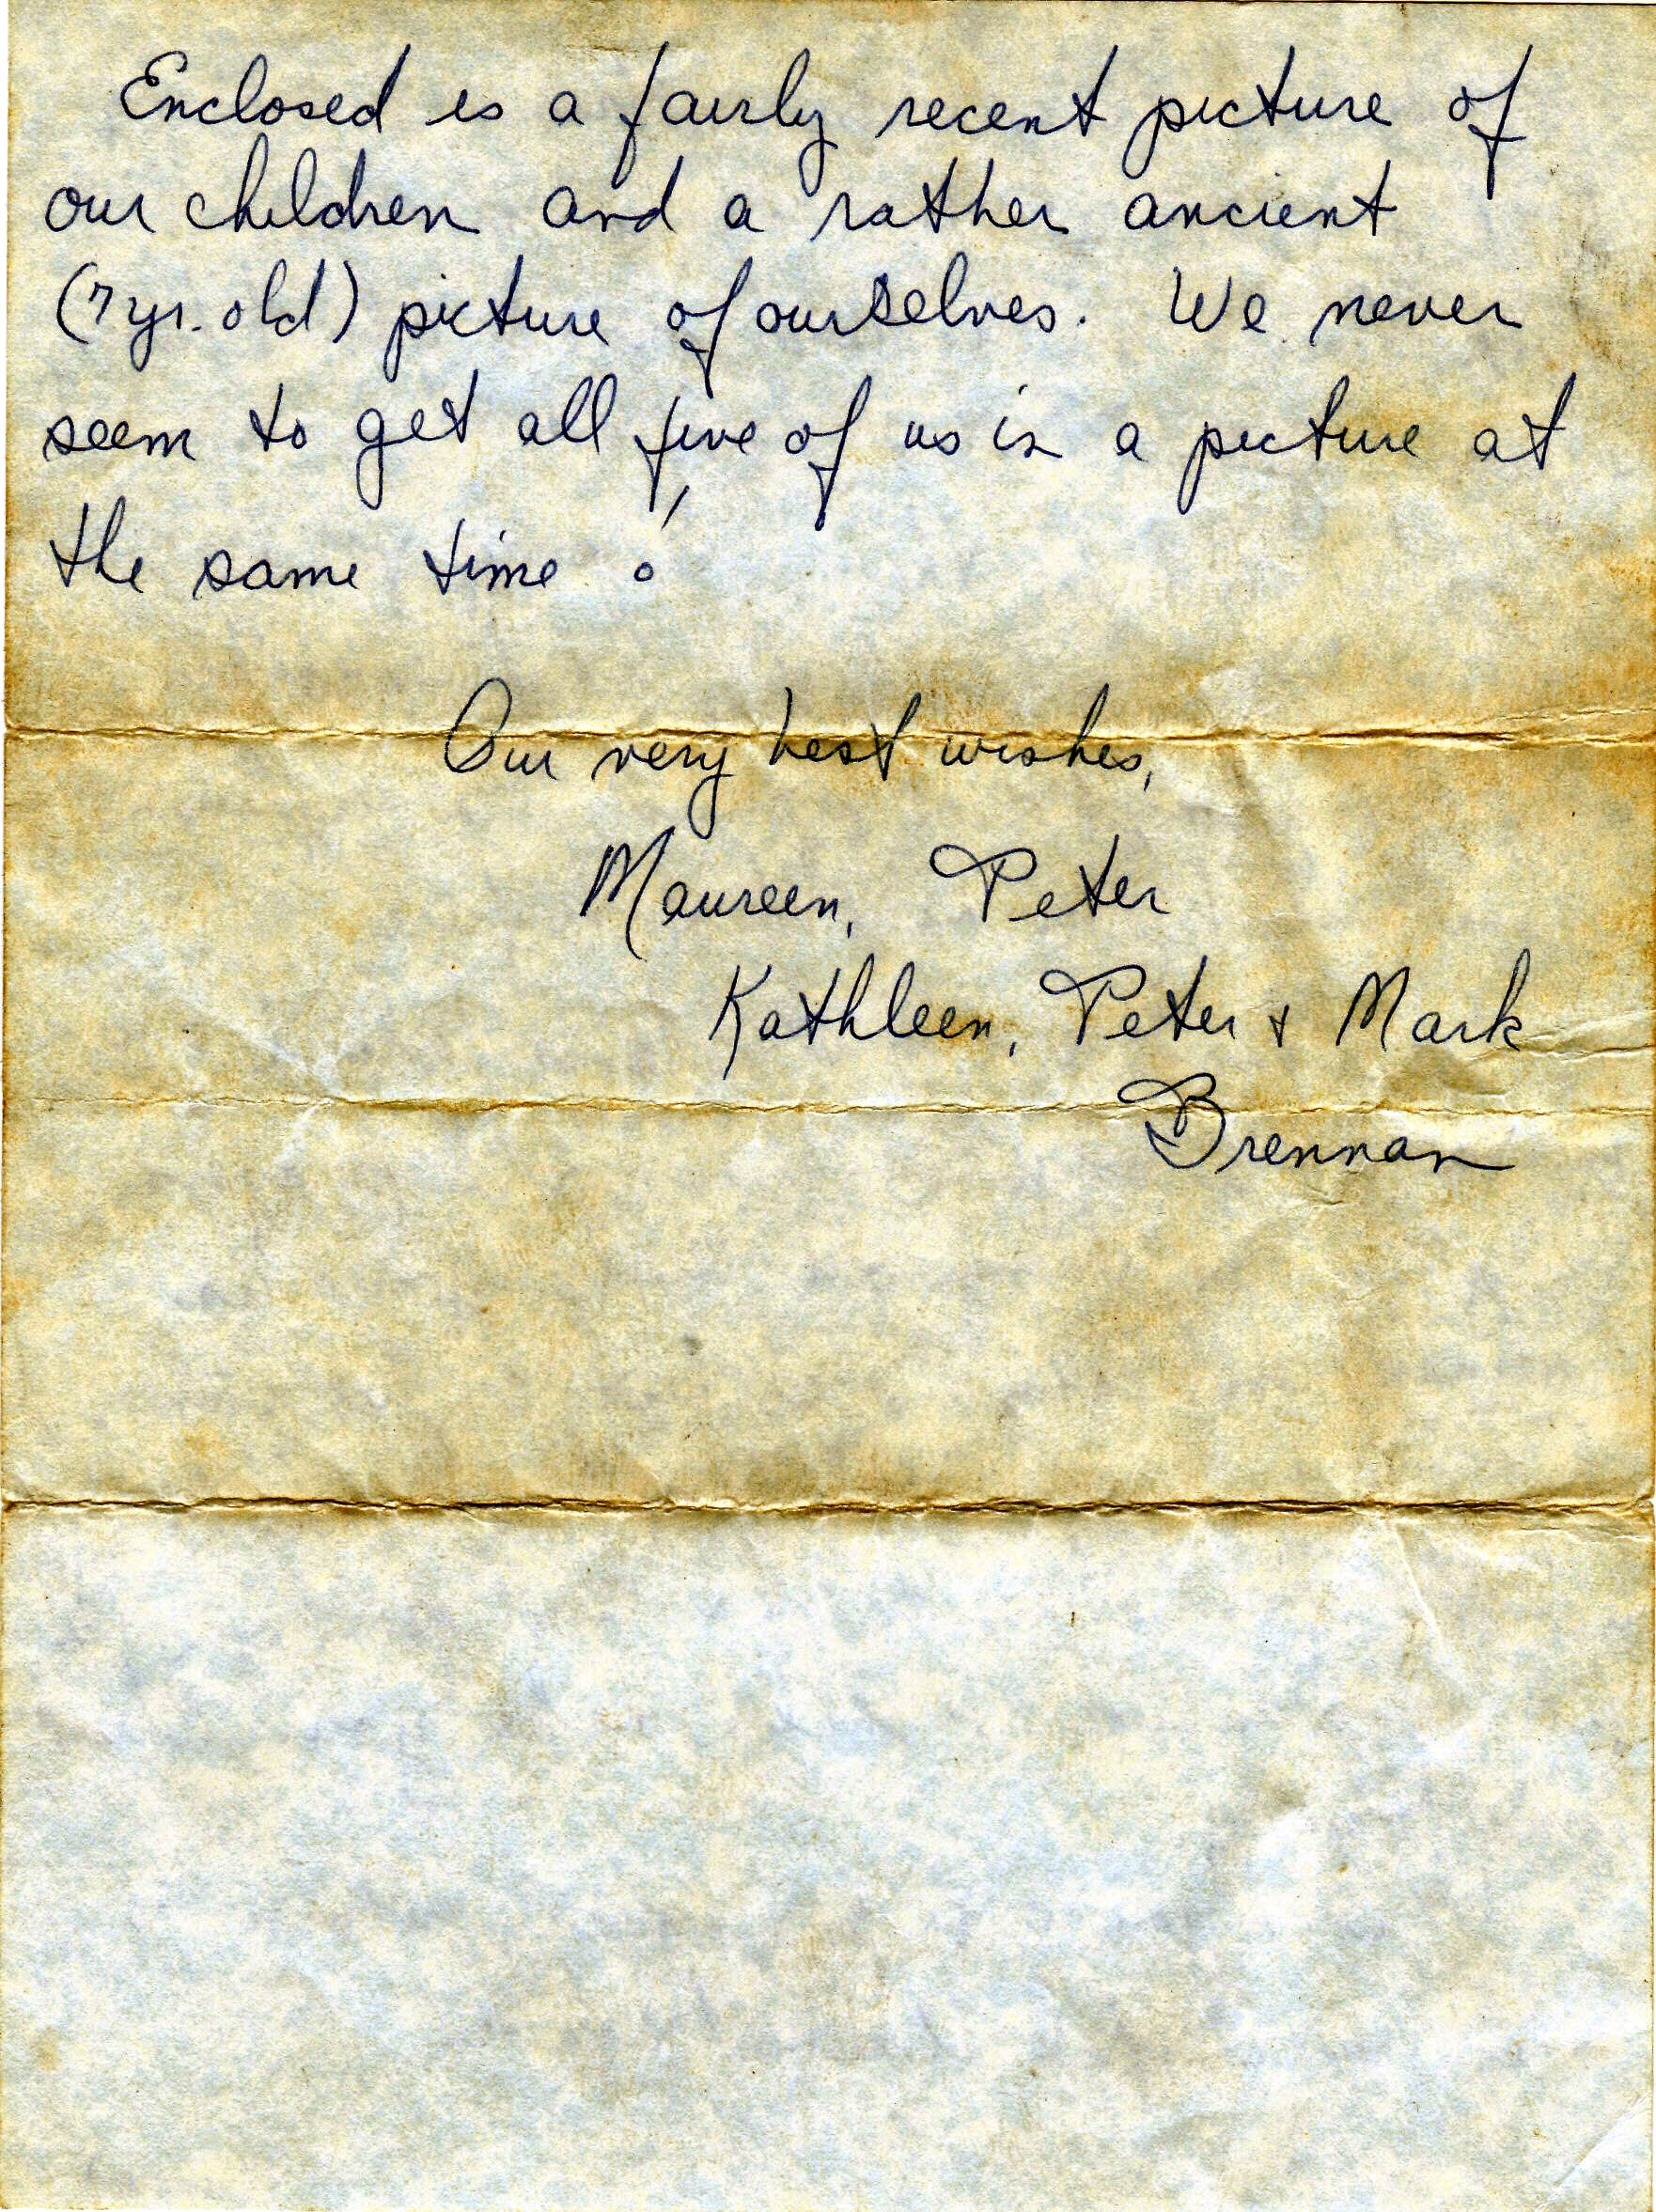 Enclosed is a fairly recent picture of
our children and a rather ancient
(7 yr. old) picture of ourselves. We never
seem to get all five of us in a picture at
the same time!
Our very best wishes,
Maureen, Peter
Kathleen, Peter + Mark
Brennan